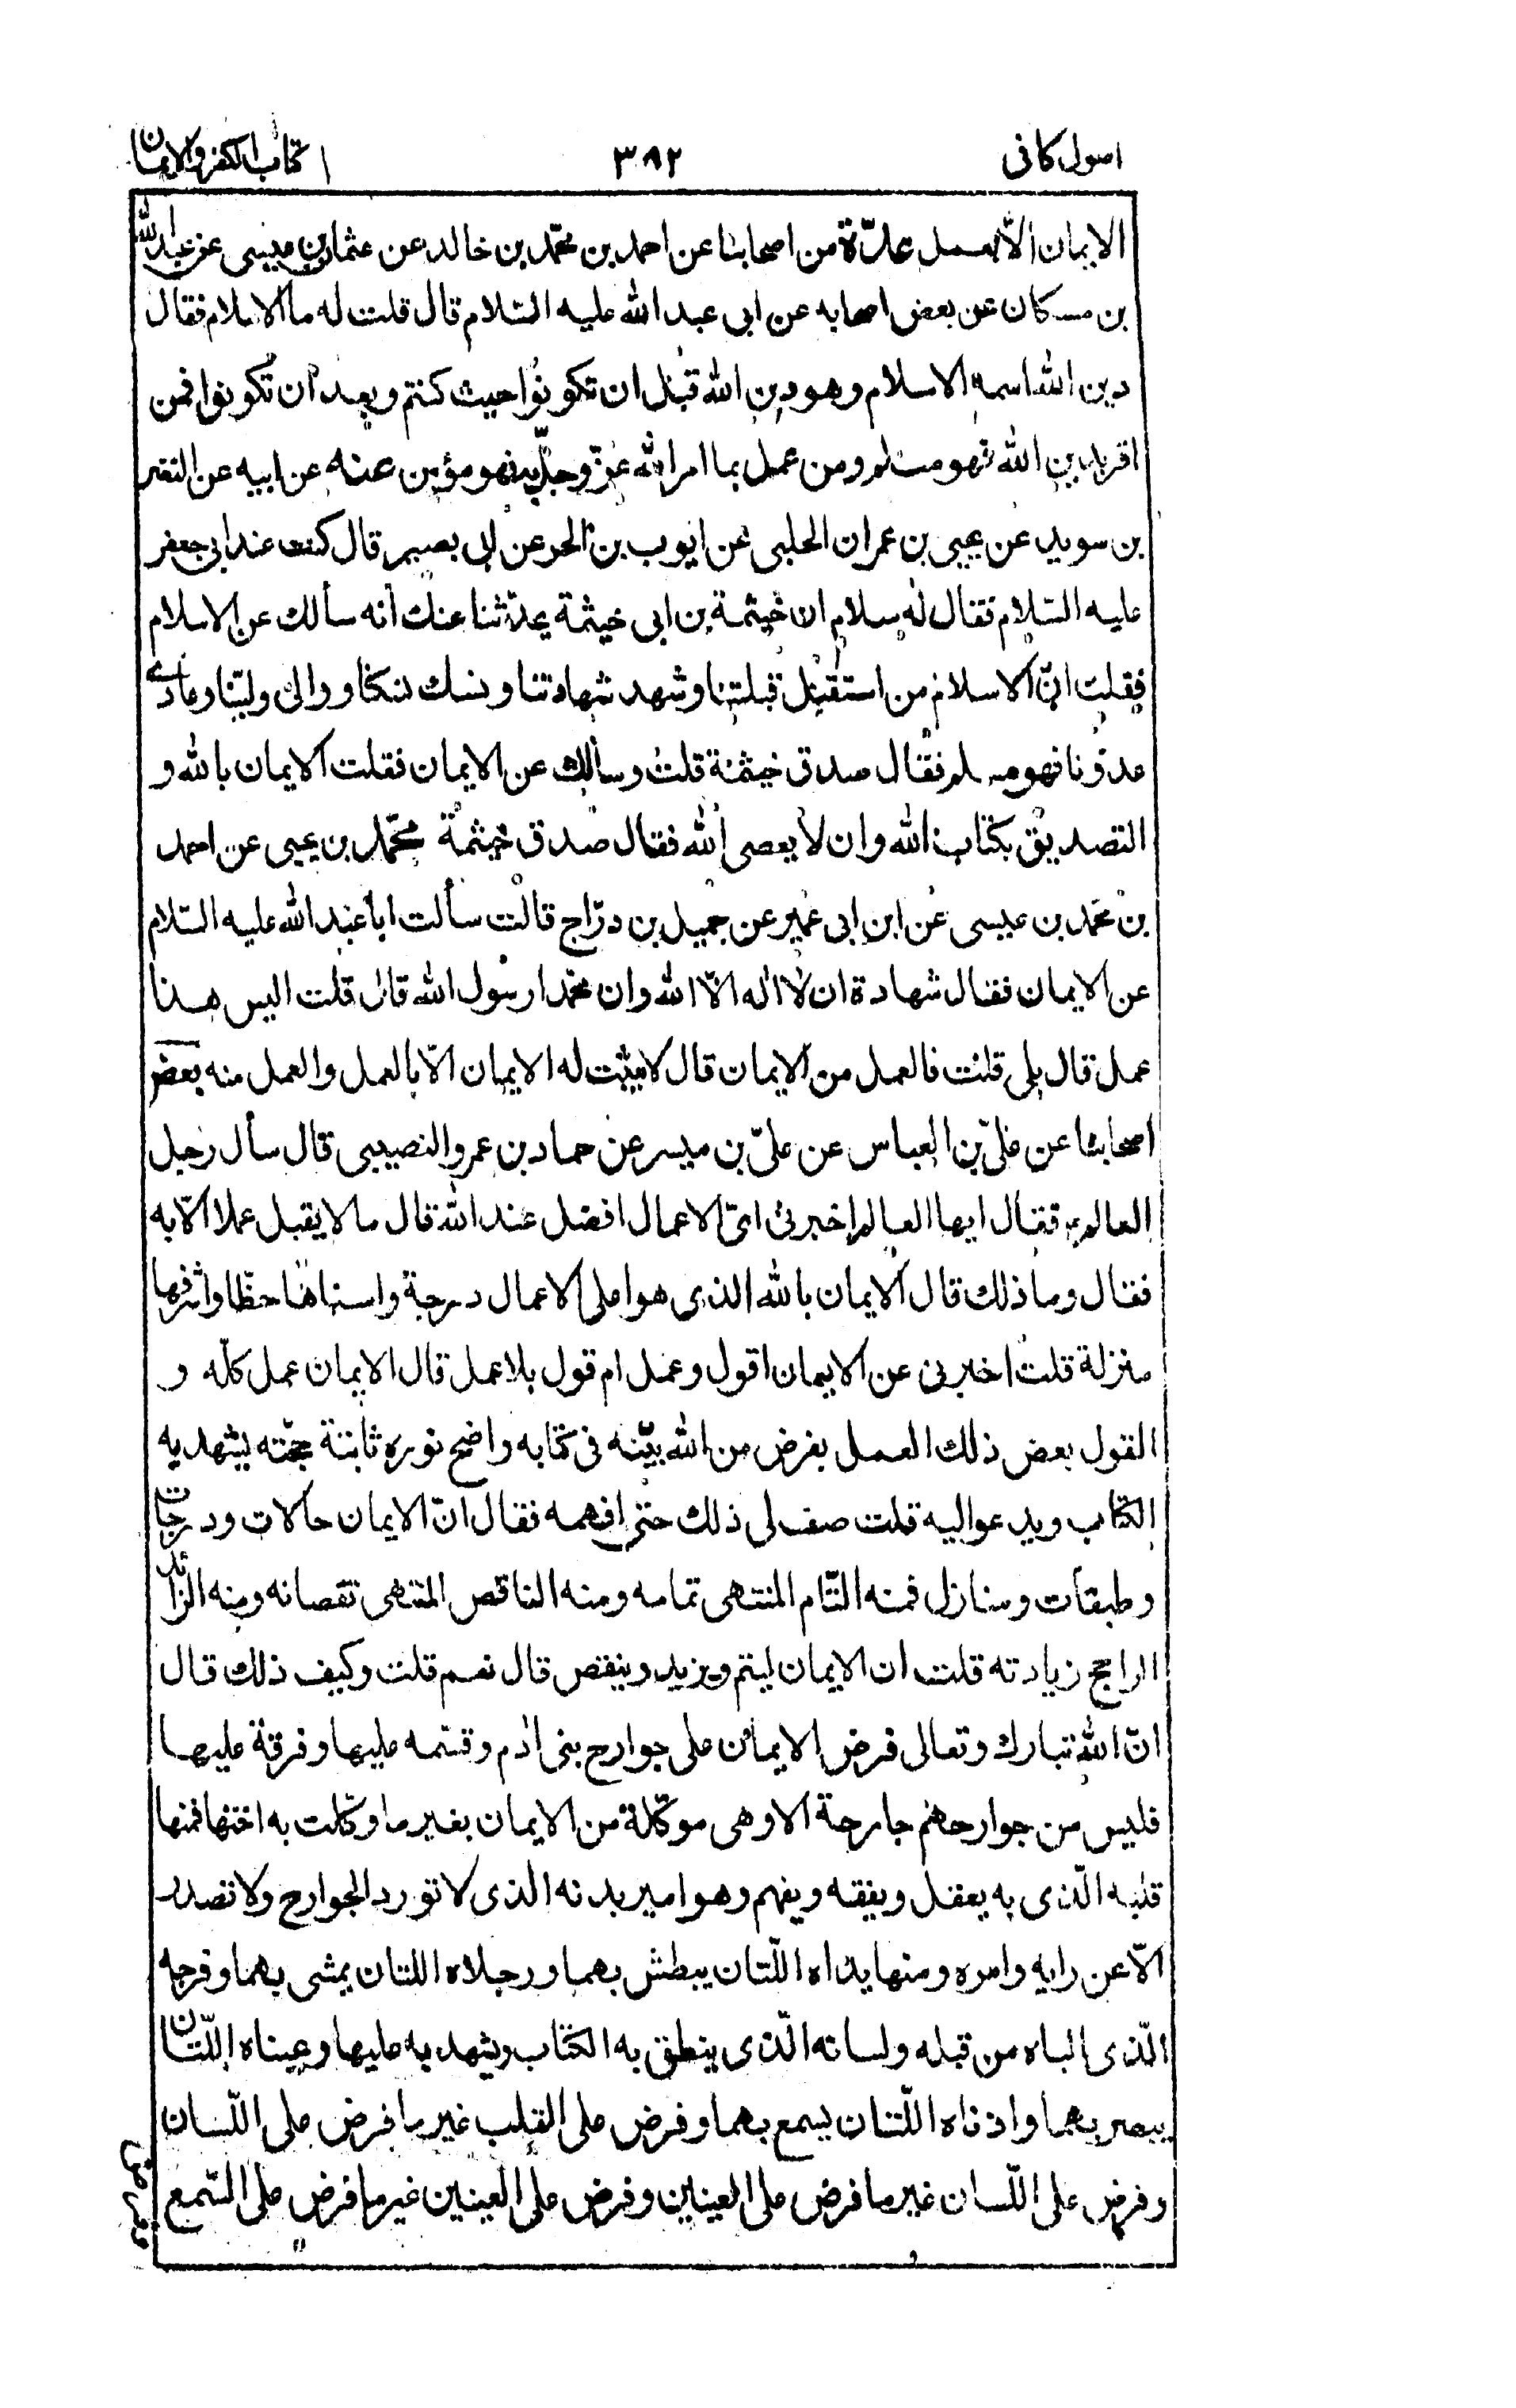 اصول كافى ٣٨٢ كتاب الكفر والايمان
الايمان الّا بعمل عدّة من اصحابنا عن احمد بن محمّد بن خالد عن عثمان بن عيسى عن عبد الله
بن مسكان عن بعض اصحابه عن ابى عبد الله عليه السّلام قال قلت له ما الاسلام فقال
دين الله اسمه الاسلام وهو دين الله قبل ان تكونوا حيث كنتم وبعد ان تكونوا فمن
اقر بدين الله فهو مسلم ومن عمل بما امر الله عزّ وجلّ به فهو مؤمن عنه عن ابيه عن النضر
بن سويد عن يحيى بن عمران الحلبى عن ايوب بن الحر عن ابى بصير قال كنت عند ابى جعفر
عليه السّلام فقال له سلام ان خيثمة بن ابى خيثمة يحدّثنا عنك انه سألك عن الاسلام
فقلت انّ الاسلام من استقبل قبلتنا وشهد شهادتنا ونسك نسكنا ووالى وليّنا وعادى
عدوّنا فهو مسلم فقال صدق خيثمة قلت وسألك عن الايمان فقلت الايمان بالله و
التصديق بكتاب الله وان لا يعصى الله فقال صدق خيثمة محمّد بن يحيى عن احمد
بن محمّد بن عيسى عن ابن ابى عمير عن جميل بن درّاج قالت سألت ابا عبد الله عليه السّلام
عن الايمان فقال شهادة ان لا اله الّا الله وان محمّدا رسول الله قال قلت اليس هذا
عمل قال بلى قلت فالعمل من الايمان قال لا يثبت له الايمان الّا بالعمل والعمل منه بعض
اصحابنا عن علىّ بن العباس عن علىّ بن ميسر عن حماد بن عمرو النصيبى قال سأل رجل
العالم ع فقال ايها العالم اخبرنى اىّ الاعمال افضل عند الله قال ما لا يقبل عملا الّا به
فقال وما ذلك قال الايمان بالله الذى هو اعلى الاعمال درجة واسناها حظّا واشرفها
منزلة قلت اخبرنى عن الايمان اقول وعمل ام قول بلا عمل قال الايمان عمل كلّه و
القول بعض ذلك العمل بفرض من الله بيّنه فى كتابه واضح نوره ثابتة حجّته يشهد به
الكتاب ويدعو اليه قلت صف لى ذلك حتى افهمه فقال انّ الايمان حالات ودرجات
وطبقات ومنازل فمنه التّام المنتهى تمامه ومنه الناقص المنتهى نقصانه ومنه الزائد
الراجح زيادته قلت ان الايمان ليتم ويزيد وينقص قال نعم قلت وكيف ذلك قال
انّ الله تبارك وتعالى فرض الايمان على جوارح بنى ادم وقسّمه عليها وفرقه عليها
فليس من جوارحهم جارحة الا وهى موكّلة من الايمان بغير ما وكّلت به اختها فمنها
قلبه الّذى به يعقل ويفقه ويفهم وهو امير بدنه الذى لا تورد الجوارح ولا تصدر
الّا عن رايه وامره ومنها يداه اللّتان يبطش بهما ورجلاه اللتان يمشى بهما وفرجه
الّذى الباه من قبله ولسانه الّذى ينطق به الكتاب ويشهد به عليها وعيناه اللّتان
يبصر بهما واذناه اللّتان يسمع بهما وفرض على القلب غير ما فرض على اللّسان
وفرض على اللّسان غير ما فرض على العينين وفرض على العينين غير ما فرض على السّمع